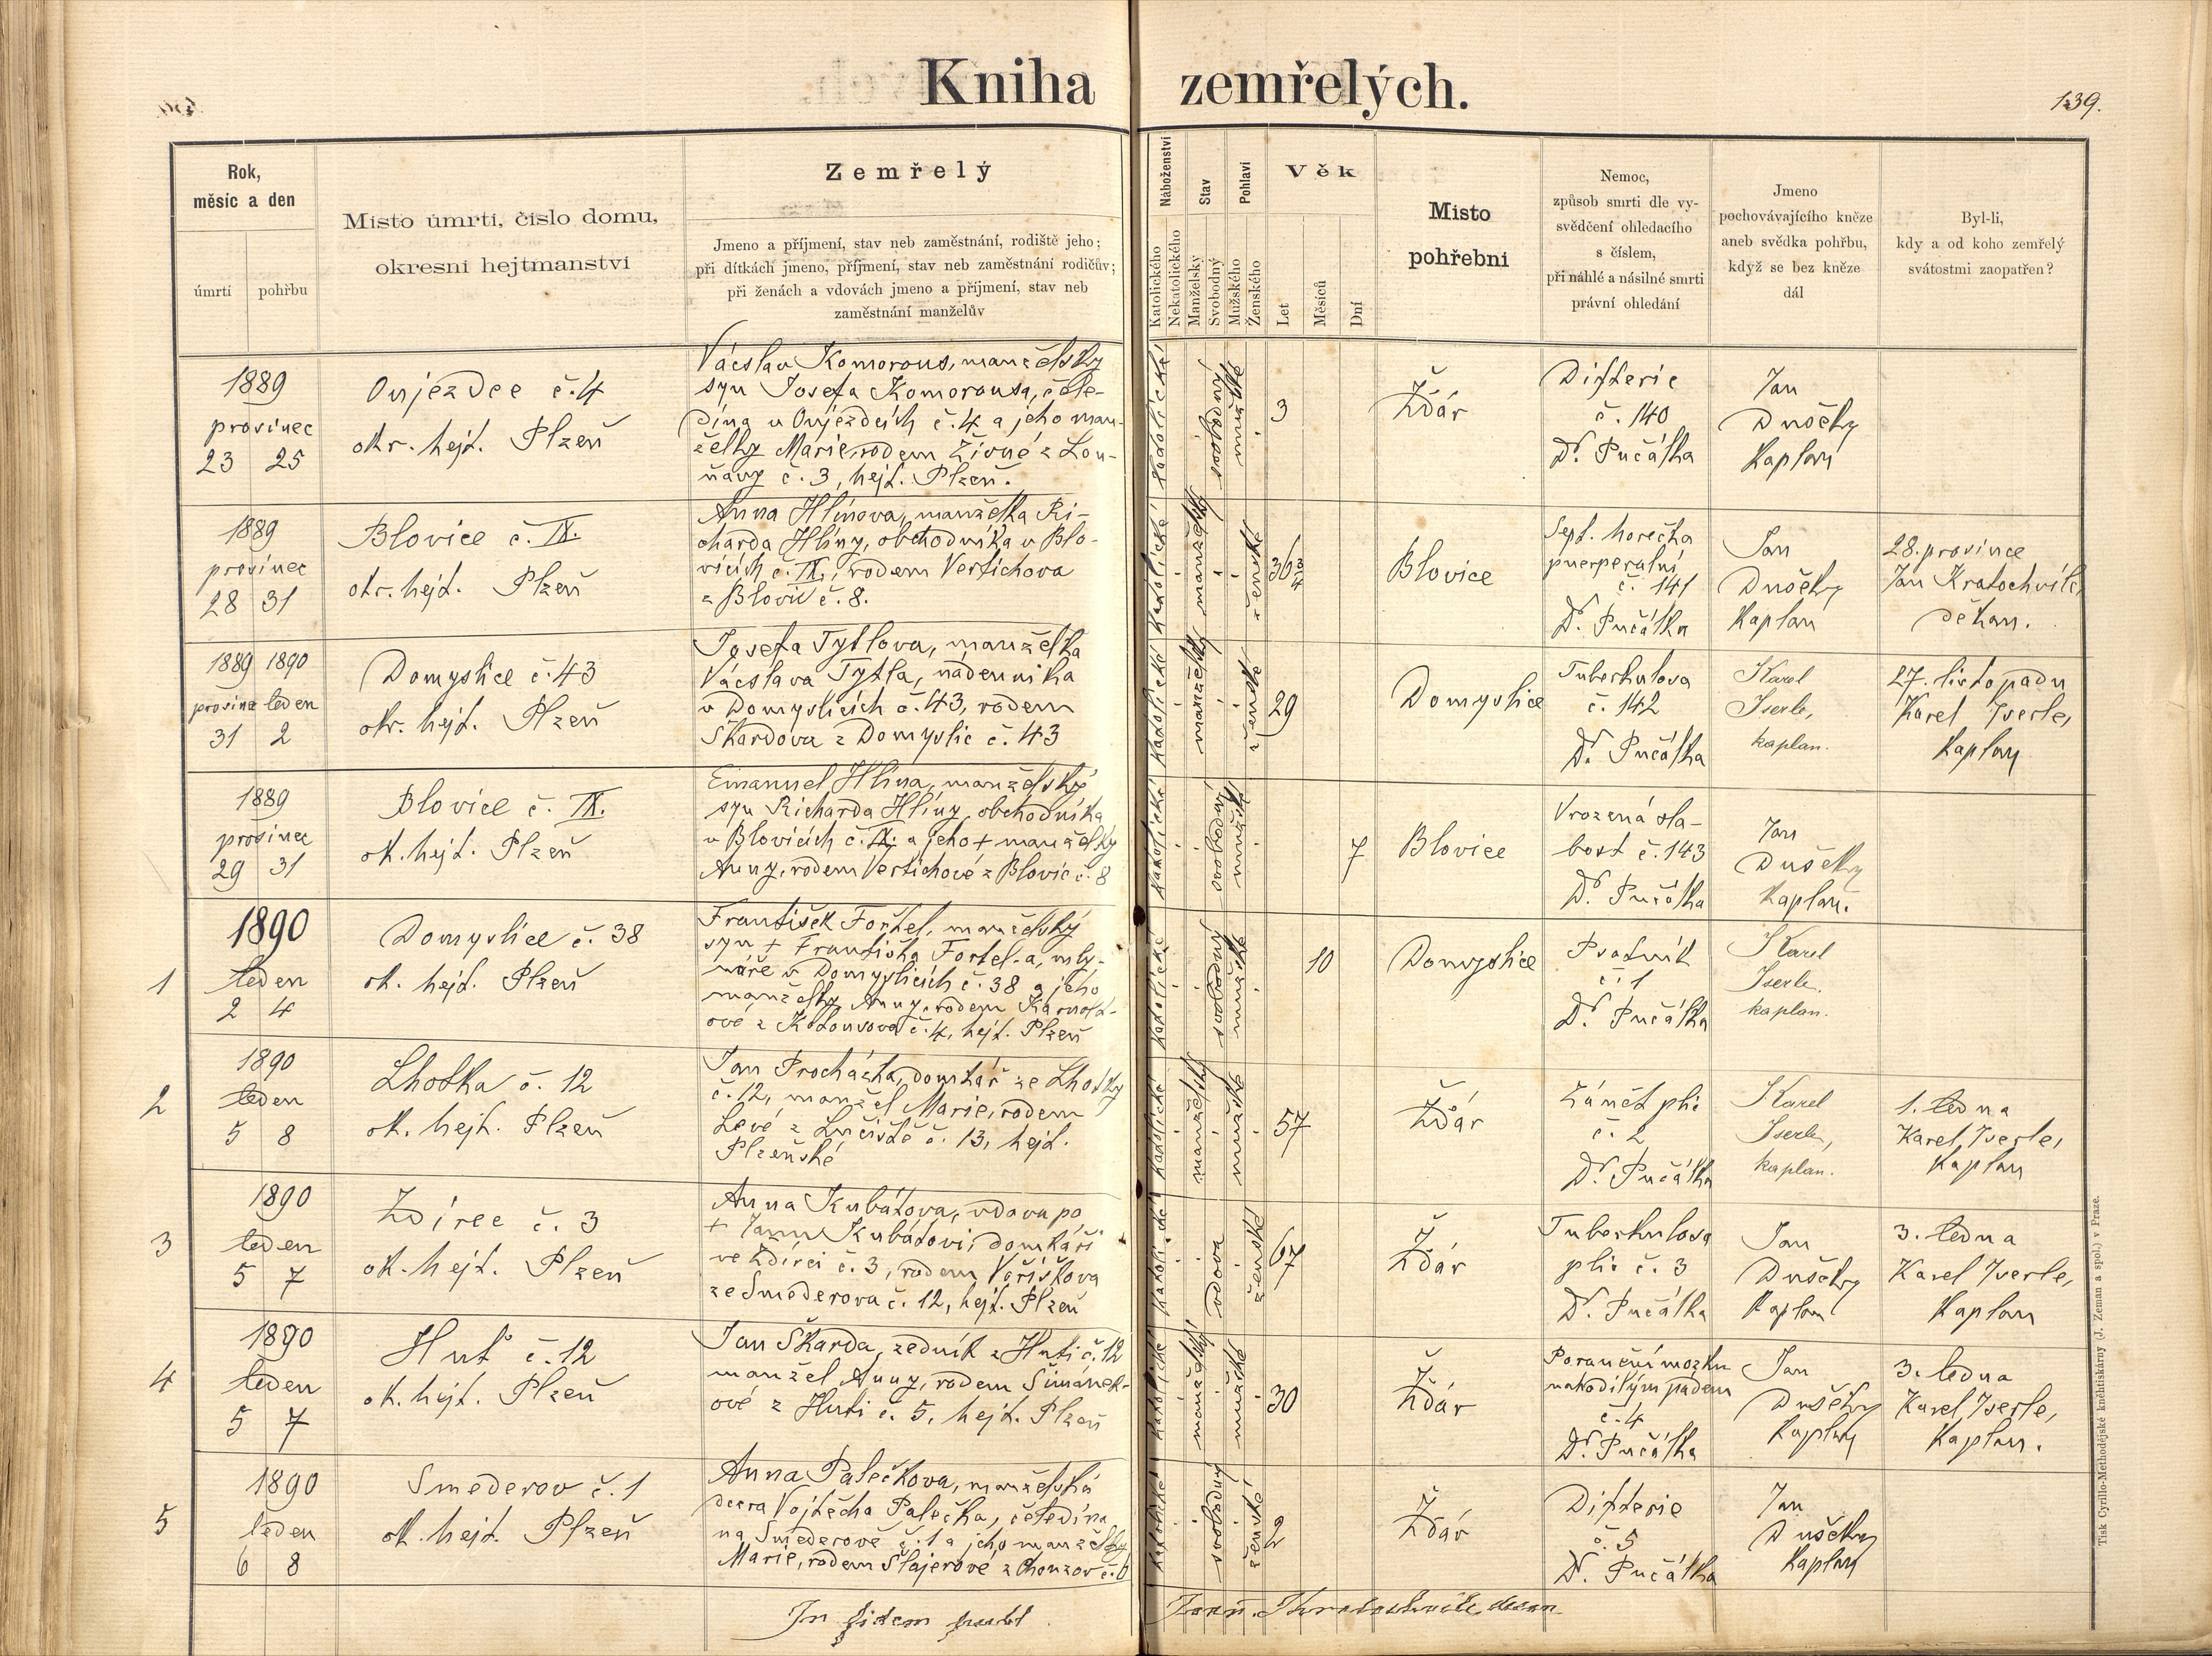 Kniha zemřelých.
139.
Rok,
měsíc a den
úmrtí
pohřbu
Místo úmrtí, číslo domu,
okresní hejtmanství
Zemřelý
Jmeno a příjmení, stav neb zaměstnání, rodiště jeho;
při dítkách jmeno, příjmení, stav neb zaměstnání rodičův;
při ženách a vdovách jmeno a příjmení, stav neb
zaměstnání manželův
Náboženství
Katolického
Nekatolického
Stav
Manželský
Svobodný
Pohlaví
Mužského
Ženského
Věk
Let
Měsíců
Dní
Místo
pohřební
Nemoc,
způsob smrti dle vy-
svědčení ohledacího
s číslem,
při náhlé a násilné smrti
právní ohledání
Jmeno
pochovávajícího kněze
aneb svědka pohřbu,
když se bez kněze
dál
Byl-li,
kdy a od koho zemřelý
svátostmi zaopatřen?
1889
prosinec
23 25
Oujezdce č. 4
okr. hejt. Plzeň
Václav Komorous, manželský
syn Josefa Komorousa, čele-
dína v Oujezdcích č. 4 a jeho man-
želky Marie, rodem Živné z Lou-
ňavy č. 3, hejt. Plzeň.
katolické
svobodný
mužské
3
Ždár
Difterie
č. 140
Dr. Pučálka
Jan
Dušek
kaplan
1889
prosinec
28 31
Blovice č. IX.
okr. hejt. Plzeň
Anna Hlínova, manželka Ri-
charda Hlíny, obchodníka v Blo-
vicích č. IX., rodem Vertichova
z Blovic č. 8.
katolické
manželský
ženské
36 3/4
Blovice
Sept. horečka
puerperální
č. 141
Dr. Pučálka
Jan
Dušek
kaplan
28. prosince
Jan Kratochvíle,
děkan.
1889 1890
prosinec leden
31 2
Domyslice č. 43
okr. hejt. Plzeň
Josefa Tytlova, manželka
Václava Tytla, nádenníka
v Domyslicích č. 43, rodem
Škardova z Domyslic č. 43
katolické
manželský
ženské
29
Domyslice
Tuberkulosa
č. 142
Dr. Pučálka
Karel
Iserle,
kaplan.
27. listopadu
Karel Iserle,
kaplan
1889
prosinec
29 31
Blovice č. IX.
ok. hejt. Plzeň
Emanuel Hlína, manželský
syn Richarda Hlíny, obchodníka
v Blovicích č. IX. a jeho + manželky
Anny, rodem Vertichové z Blovic č. 8
katolické
svobodný
mužské
7
Blovice
Vrozená sla-
bost č. 143
Dr. Pučálka
Jan
Dušek
kaplan.
1
1890
leden
2 4
Domyslice č. 38
ok. hejt. Plzeň
František Fořtel, manželský
syn + Františka Fortel-a, mly-
náře v Domyslicích č. 38 a jeho
manželky Anny, rodem
ové z Kotousova č. 4, hejt. Plzeň
katolické
svobodný
mužské
10
Domyslice
Psotník
č. 1
Dr. Pučálka
Karel
Iserle.
kaplan.
2
1890
leden
5 8
Lhotka č. 12
ok. hejt. Plzeň
Jan Procházka, domkář ze Lhotky
č. 12, manžel Marie, rodem
Levé z Lučiště č. 13, hejt.
Plzeňské
katolické
manželský
mužské
57
Ždár
Zánět plic
č. 2
Dr. Pučálka
Karel
Iserle,
kaplan.
1. ledna
Karel Iserle,
kaplan
3
1890
leden
5 7
Ždírec č. 3
ok. hejt. Plzeň
Anna Kubátova, vdova po
+ Janu Kubátovi, domkáři
ve Ždírci č. 3, rodem Voříškova
ze Směderova č. 12, hejt. Plzeň
katolické
vdova
ženské
67
Ždár
Tuberkulosa
plic č. 3
Dr. Pučálka
Jan
Dušek
kaplan
3. ledna
Karel Iserle,
kaplan
4
1890
leden
5 7
Huť č. 12
ok. hejt. Plzeň
Jan Škarda, zedník z Huti č. 12
manžel Anny, rodem Šimánek-
ové z Huti č. 5, hejt. Plzeň
katolické
manželský
mužské
30
Ždár
Poranění mozku
nahodilým pádem
č. 4
Dr. Pučálka
Jan
Dušek
kaplan
3. ledna
Karel Iserle,
kaplan.
5
1890
leden
6 8
Smederov č. 1
ok. hejt. Plzeň
Anna Palečkova, manželská
dcera Vojtěcha Palečka, čeledína
na Smederově č. 1 a jeho manželky
Marie, rodem Šlajerové z Chouzov č. 6
katolické
svobodný
ženské
2
Ždár
Difterie
č. 5
Dr. Pučálka
Jan
Dušek
kaplan
In fidem publ.
Joan. Kratochvíle, decan
Tisk Cyrillo-Methodějské knihtiskárny (J. Zeman a spol.) v Praze.